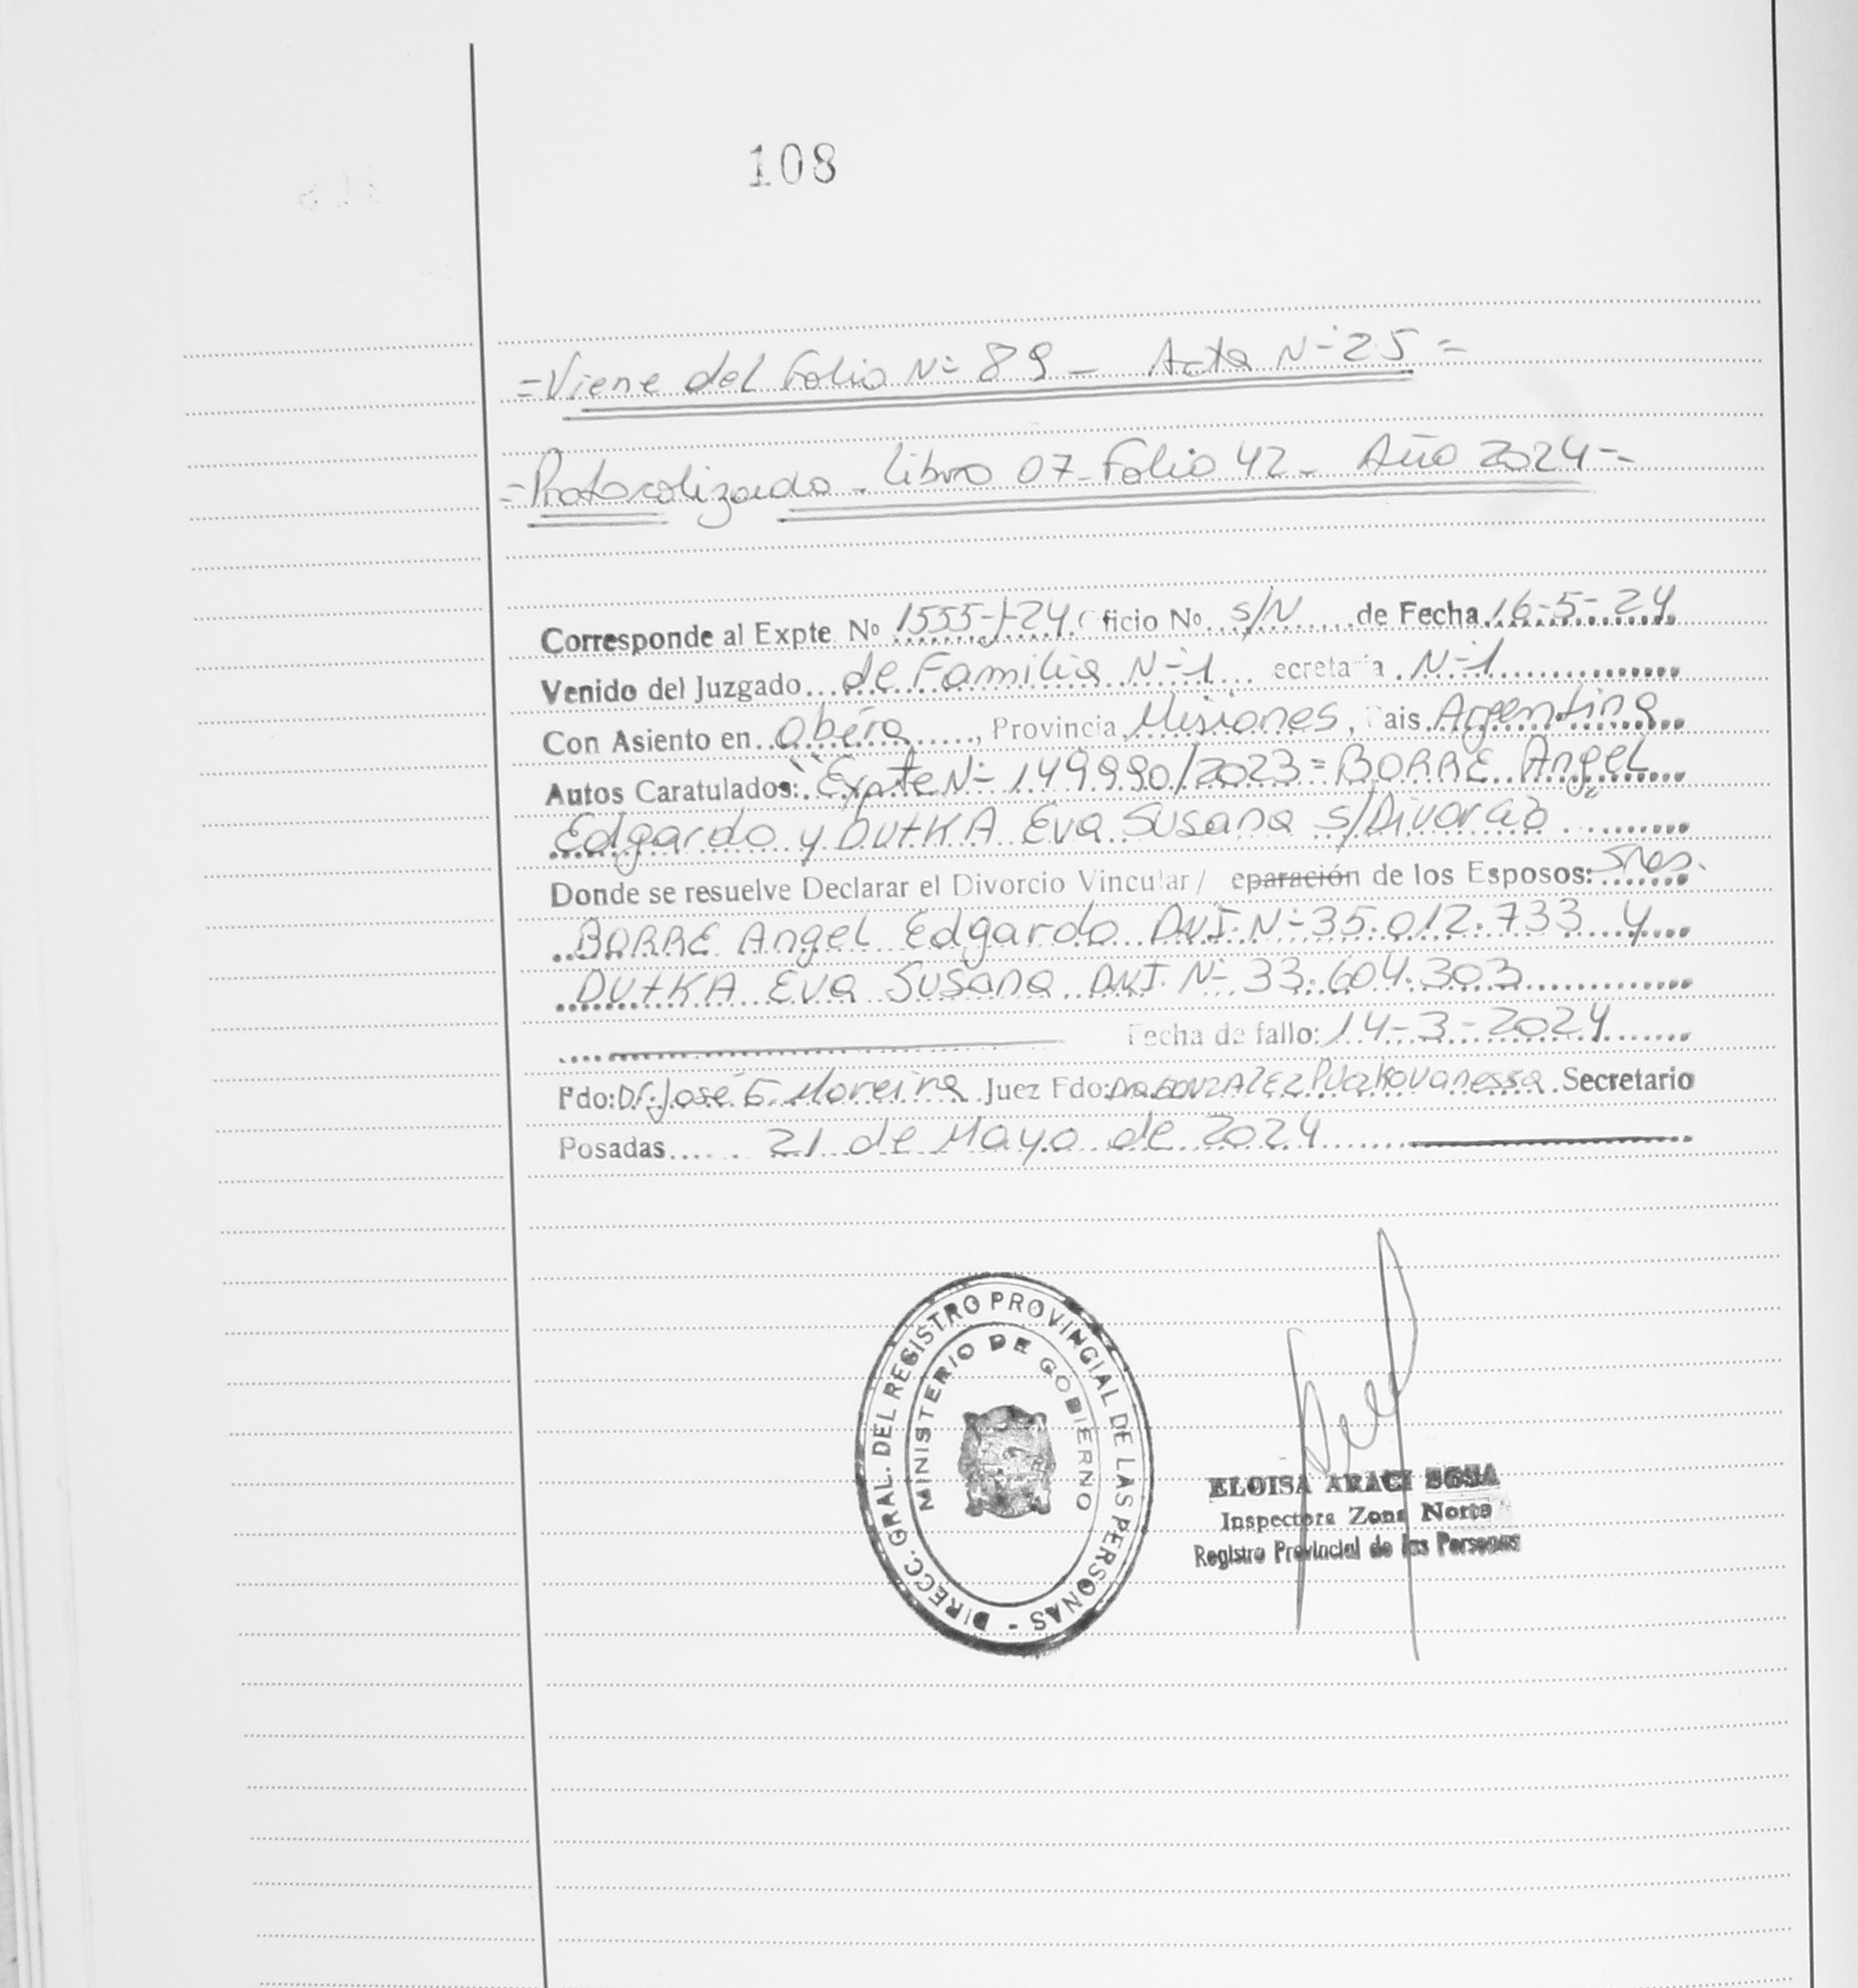 108
=Viene del Folio Nº 89 - Acta Nº 25 =
=Protocolizado - Libro 07 - Folio 42 - Año 2024 =
Corresponde al Expte Nº 1555-J-24 ficio Nº S/N de Fecha 16-5-24
Venido del Juzgado de Familia Nº 1 ecretaria Nº 1
Con Asiento en Oberá, Provincia Misiones, ais Argentina
Autos Caratulados: "Expte Nº 149990/2023 = BORRE Angel
Edgardo y DUTKA Eva Susana S/Divorcio"
Donde se resuelve Declarar el Divorcio Vincular / eparación de los Esposos: Sres.
BORRE Angel Edgardo DNI. Nº 35.012.733 y
DUTKA Eva Susana DNI. Nº 33.604.303
Fecha de fallo: 14-3-2024
Fdo: Dr. José G. Moreira Juez Fdo: Dra GONZALEZ Vanessa Secretario
Posadas 21 de Mayo de 2024
DIRECC. GRAL. DEL REGISTRO PROVINCIAL DE LAS PERSONAS -
MINISTERIO DE GOBIERNO
ELOISA ARACI SOSA
Inspectora Zona Norte
Registro Provincial de las Personas